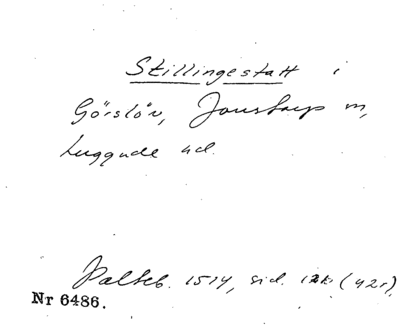 Stillingestatt i
Görslöv, Jonstorp m,
Luggude hd.
Palteb. 1514, sid. (42r),
Nr 6486.